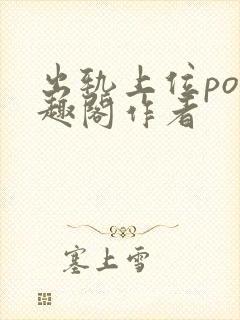 出轨上位po
趣阁作者
塞上雪